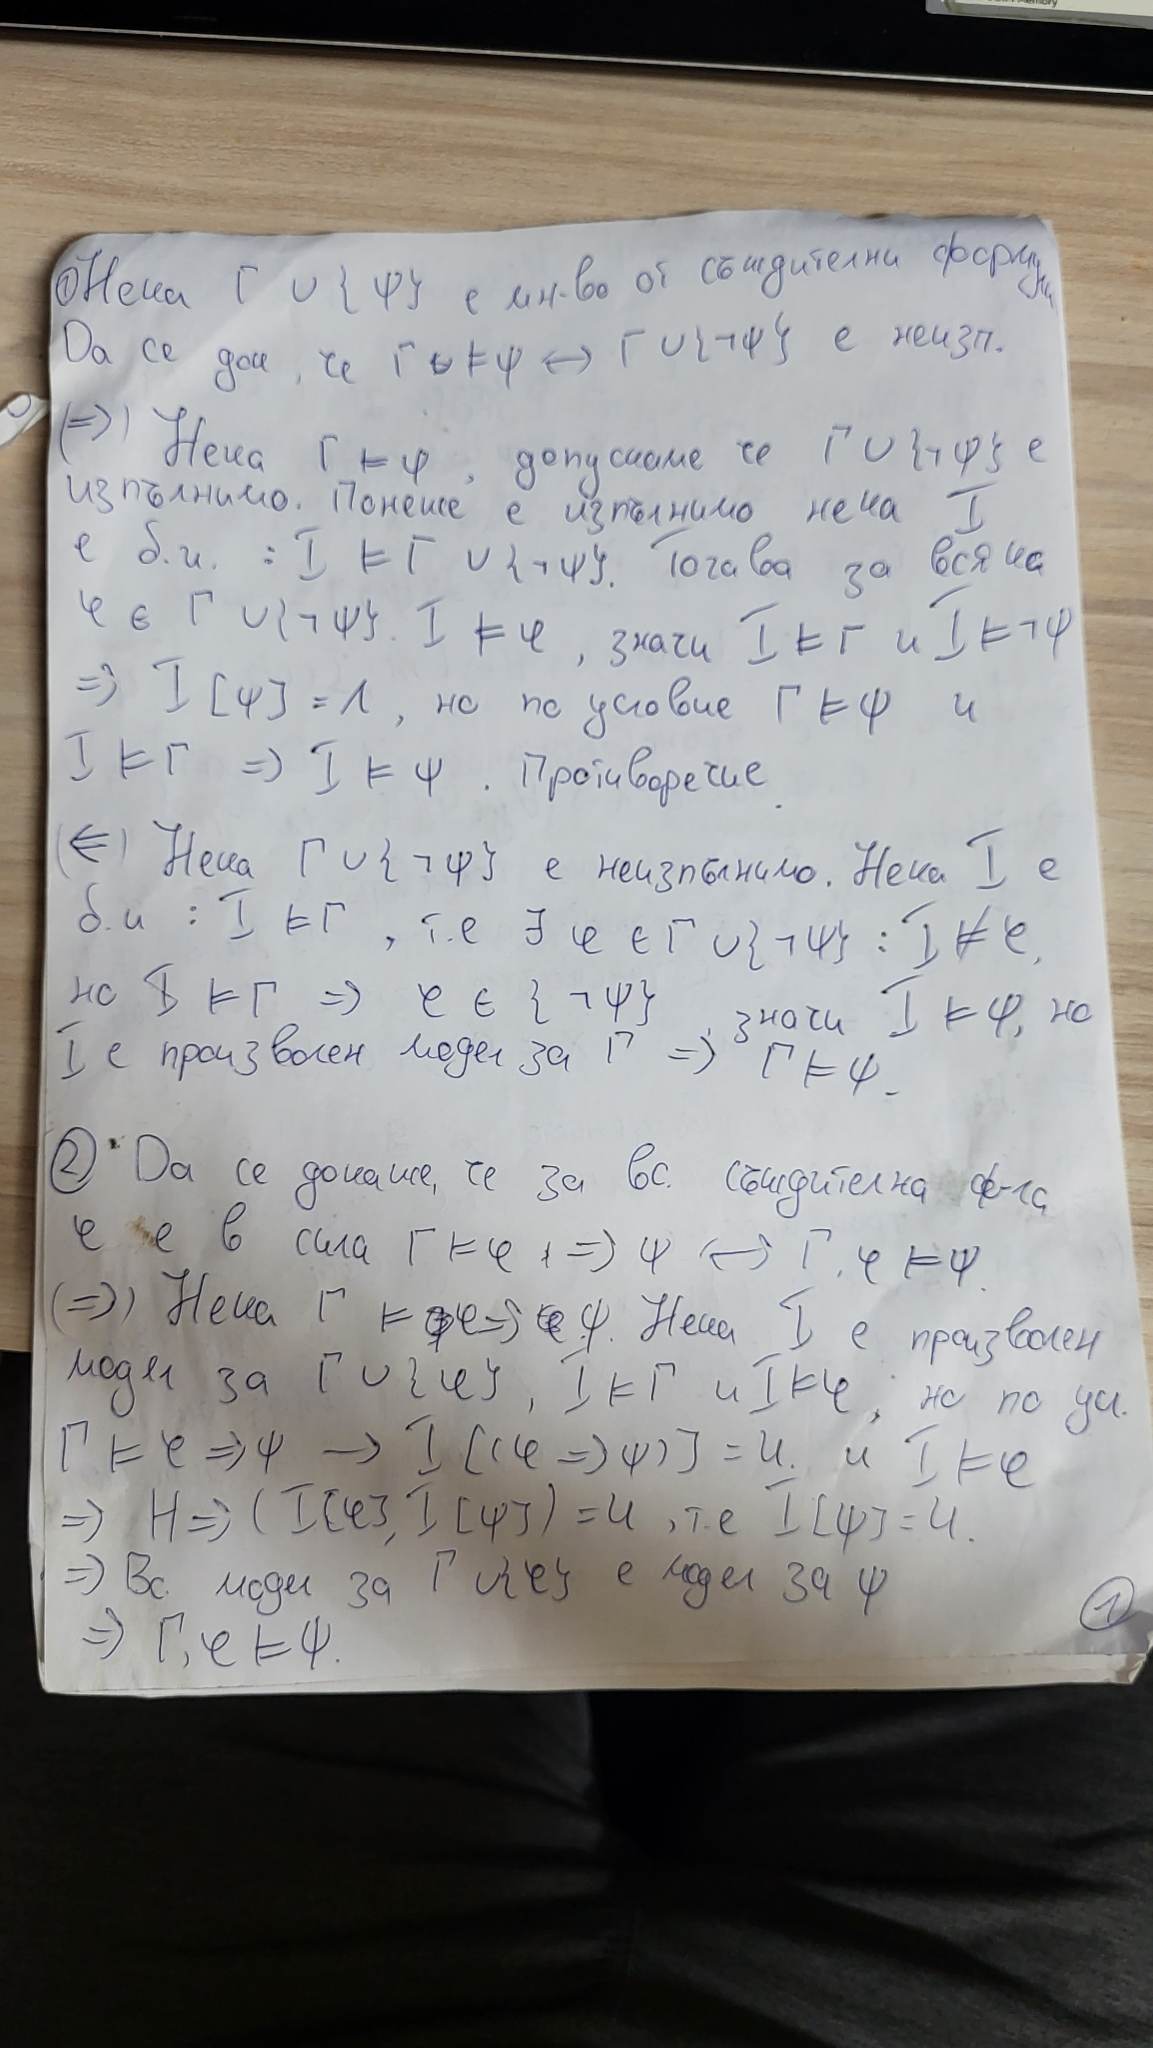 ① Нека Γ ∪ {ψ} е мн-во от съждителни формули
Да се док, че Γ ⊨ ψ ↔ Γ ∪ {¬ψ} е неизп.
(⇒) Нека Γ ⊨ ψ, допускаме че Γ ∪ {¬ψ} е
изпълнимо. Понеже е изпълнимо нека I
е б.и. : I ⊨ Γ ∪ {¬ψ}. Тогава за всяка
φ ∈ Γ ∪ {¬ψ}. I ⊨ φ, значи I ⊨ Γ и I ⊨ ¬ψ
⇒ I [ψ] = Л, но по условие Γ ⊨ ψ и
I ⊨ Γ ⇒ I ⊨ ψ. Противоречие.
(⇐) Нека Γ ∪ {¬ψ} е неизпълнимо. Нека I е
б.и : I ⊨ Γ, т.е ∃ φ ∈ Γ ∪ {¬ψ} : I ⊭ φ,
но I ⊨ Γ ⇒ φ ∈ {¬ψ}, значи I ⊨ ψ, но
I е произволен модел за Γ ⇒ Γ ⊨ ψ.
② Да се докаже, че за вс. съждителна ф-ла
φ е в сила Γ ⊨ φ ⇒ ψ ↔ Γ, φ ⊨ ψ.
(⇒) Нека Γ ⊨ φ ⇒ ψ. Нека I е произволен
модел за Γ ∪ {φ}, I ⊨ Γ и I ⊨ φ, но по усл.
Γ ⊨ φ ⇒ ψ → I [(φ ⇒ ψ)] = И. и I ⊨ φ
⇒ H⇒ (I[φ], I[ψ]) = И, т.е I[ψ] = И.
⇒ Вс. модел за Γ ∪ {φ} е модел за ψ
⇒ Γ, φ ⊨ ψ.
①